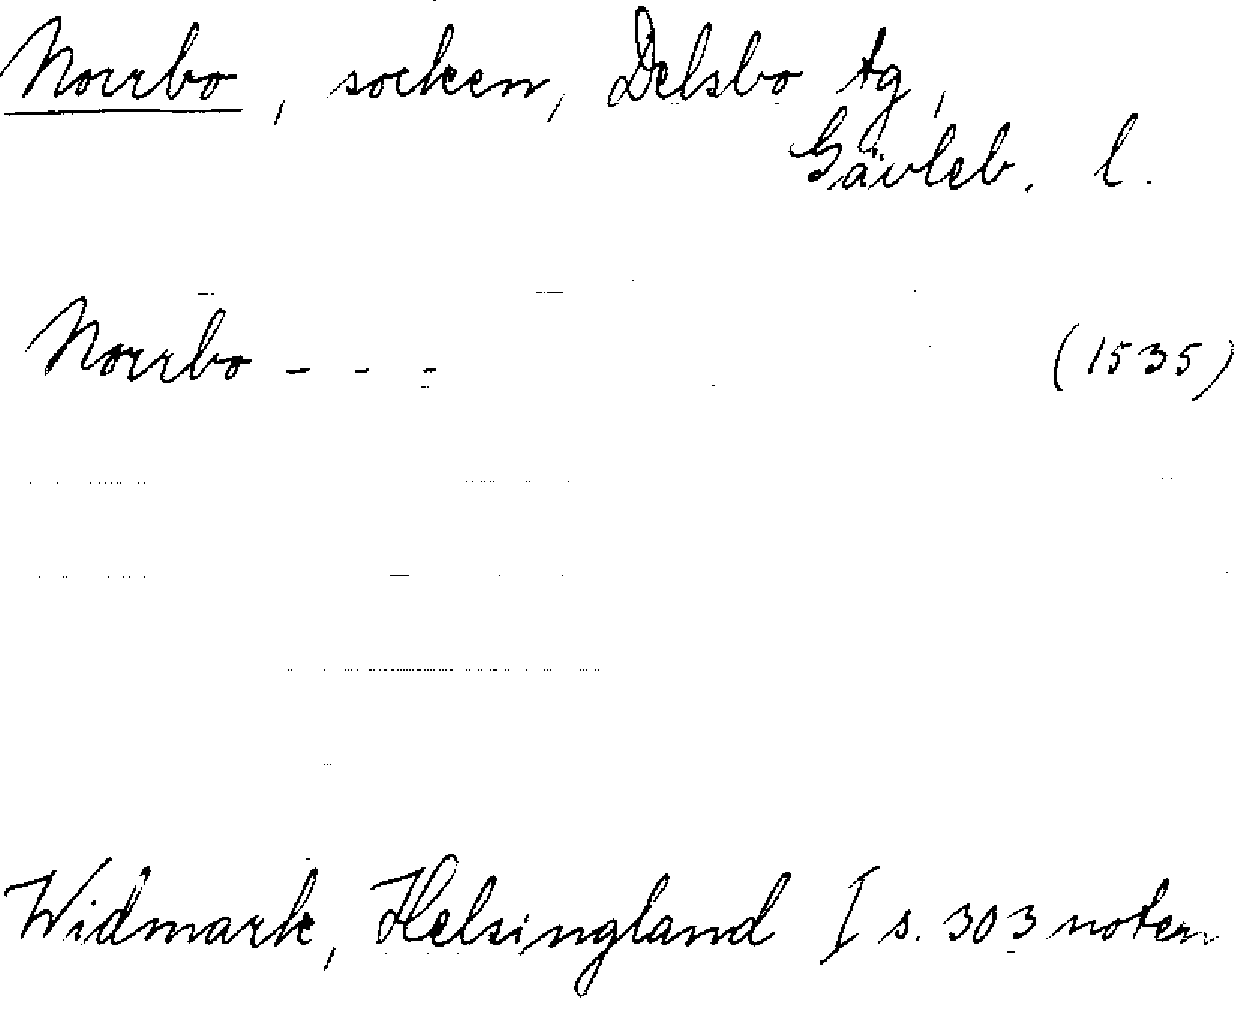 Norrbo, socken, Delsbo tg,
Gävleb. l.
Norrbo - - - (1535)
Widmark, Helsingland I s. 303 noten